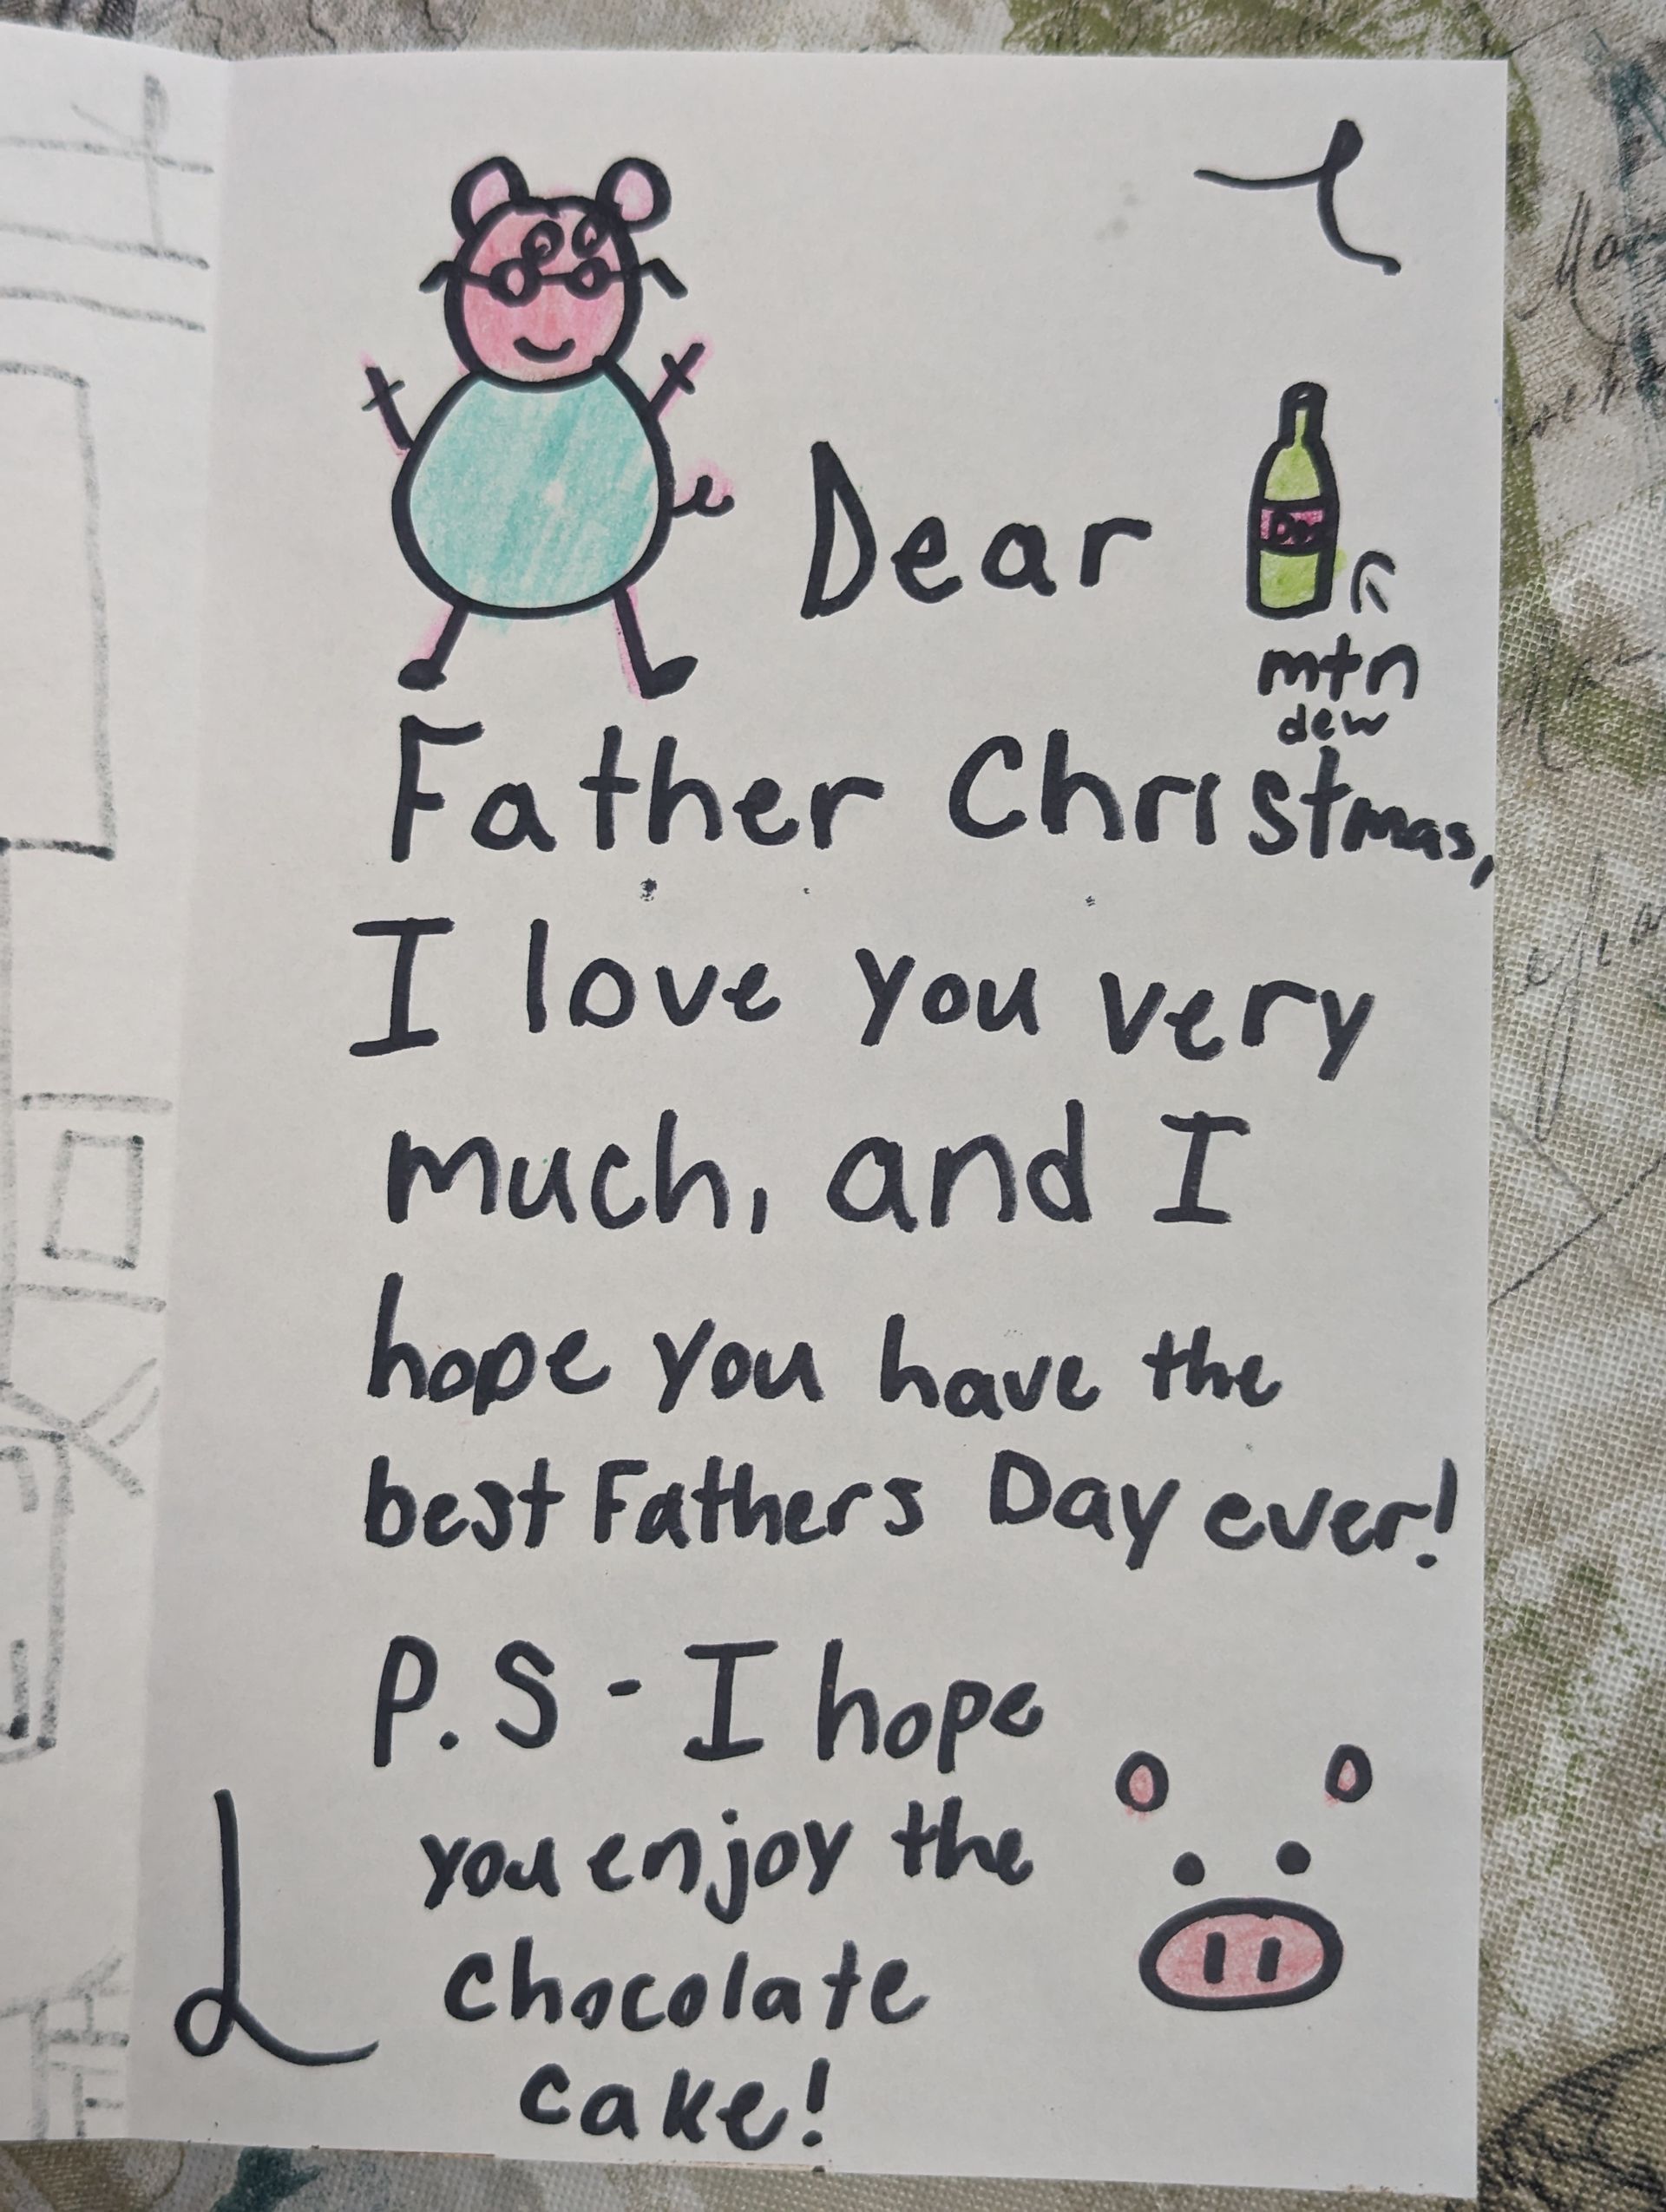 Dear
mtn
dew
Father Christmas,
I love you very
much, and I
hope you have the
best Fathers Day ever!
P.S - I hope
you enjoy the
chocolate
cake!